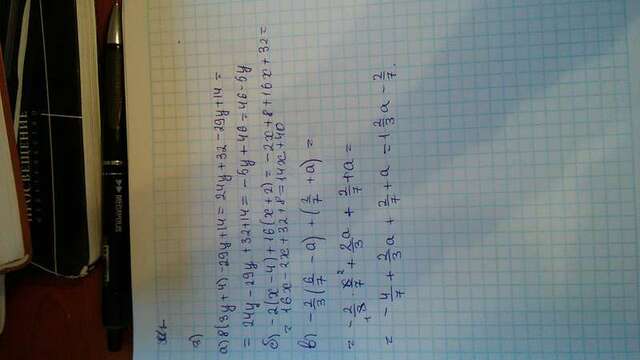 2)
а) 8(3y+4)-29y+14=24y+32-29y+14=
=24y-29y+32+14=-5y+46=46-5y
б) -2(x-4)+16(x+2)=-2x+8+16x+32=
=16x-2x+32+8=14x+40
в) -2/3(6/7-a)+(2/7+a)=
=-2/3·6/7+2/3a+2/7+a=
=-4/7+2/3a+2/7+a=1 2/3a-2/7.
ПРОСВЕЩЕНИЕ
MEGAPOLIS